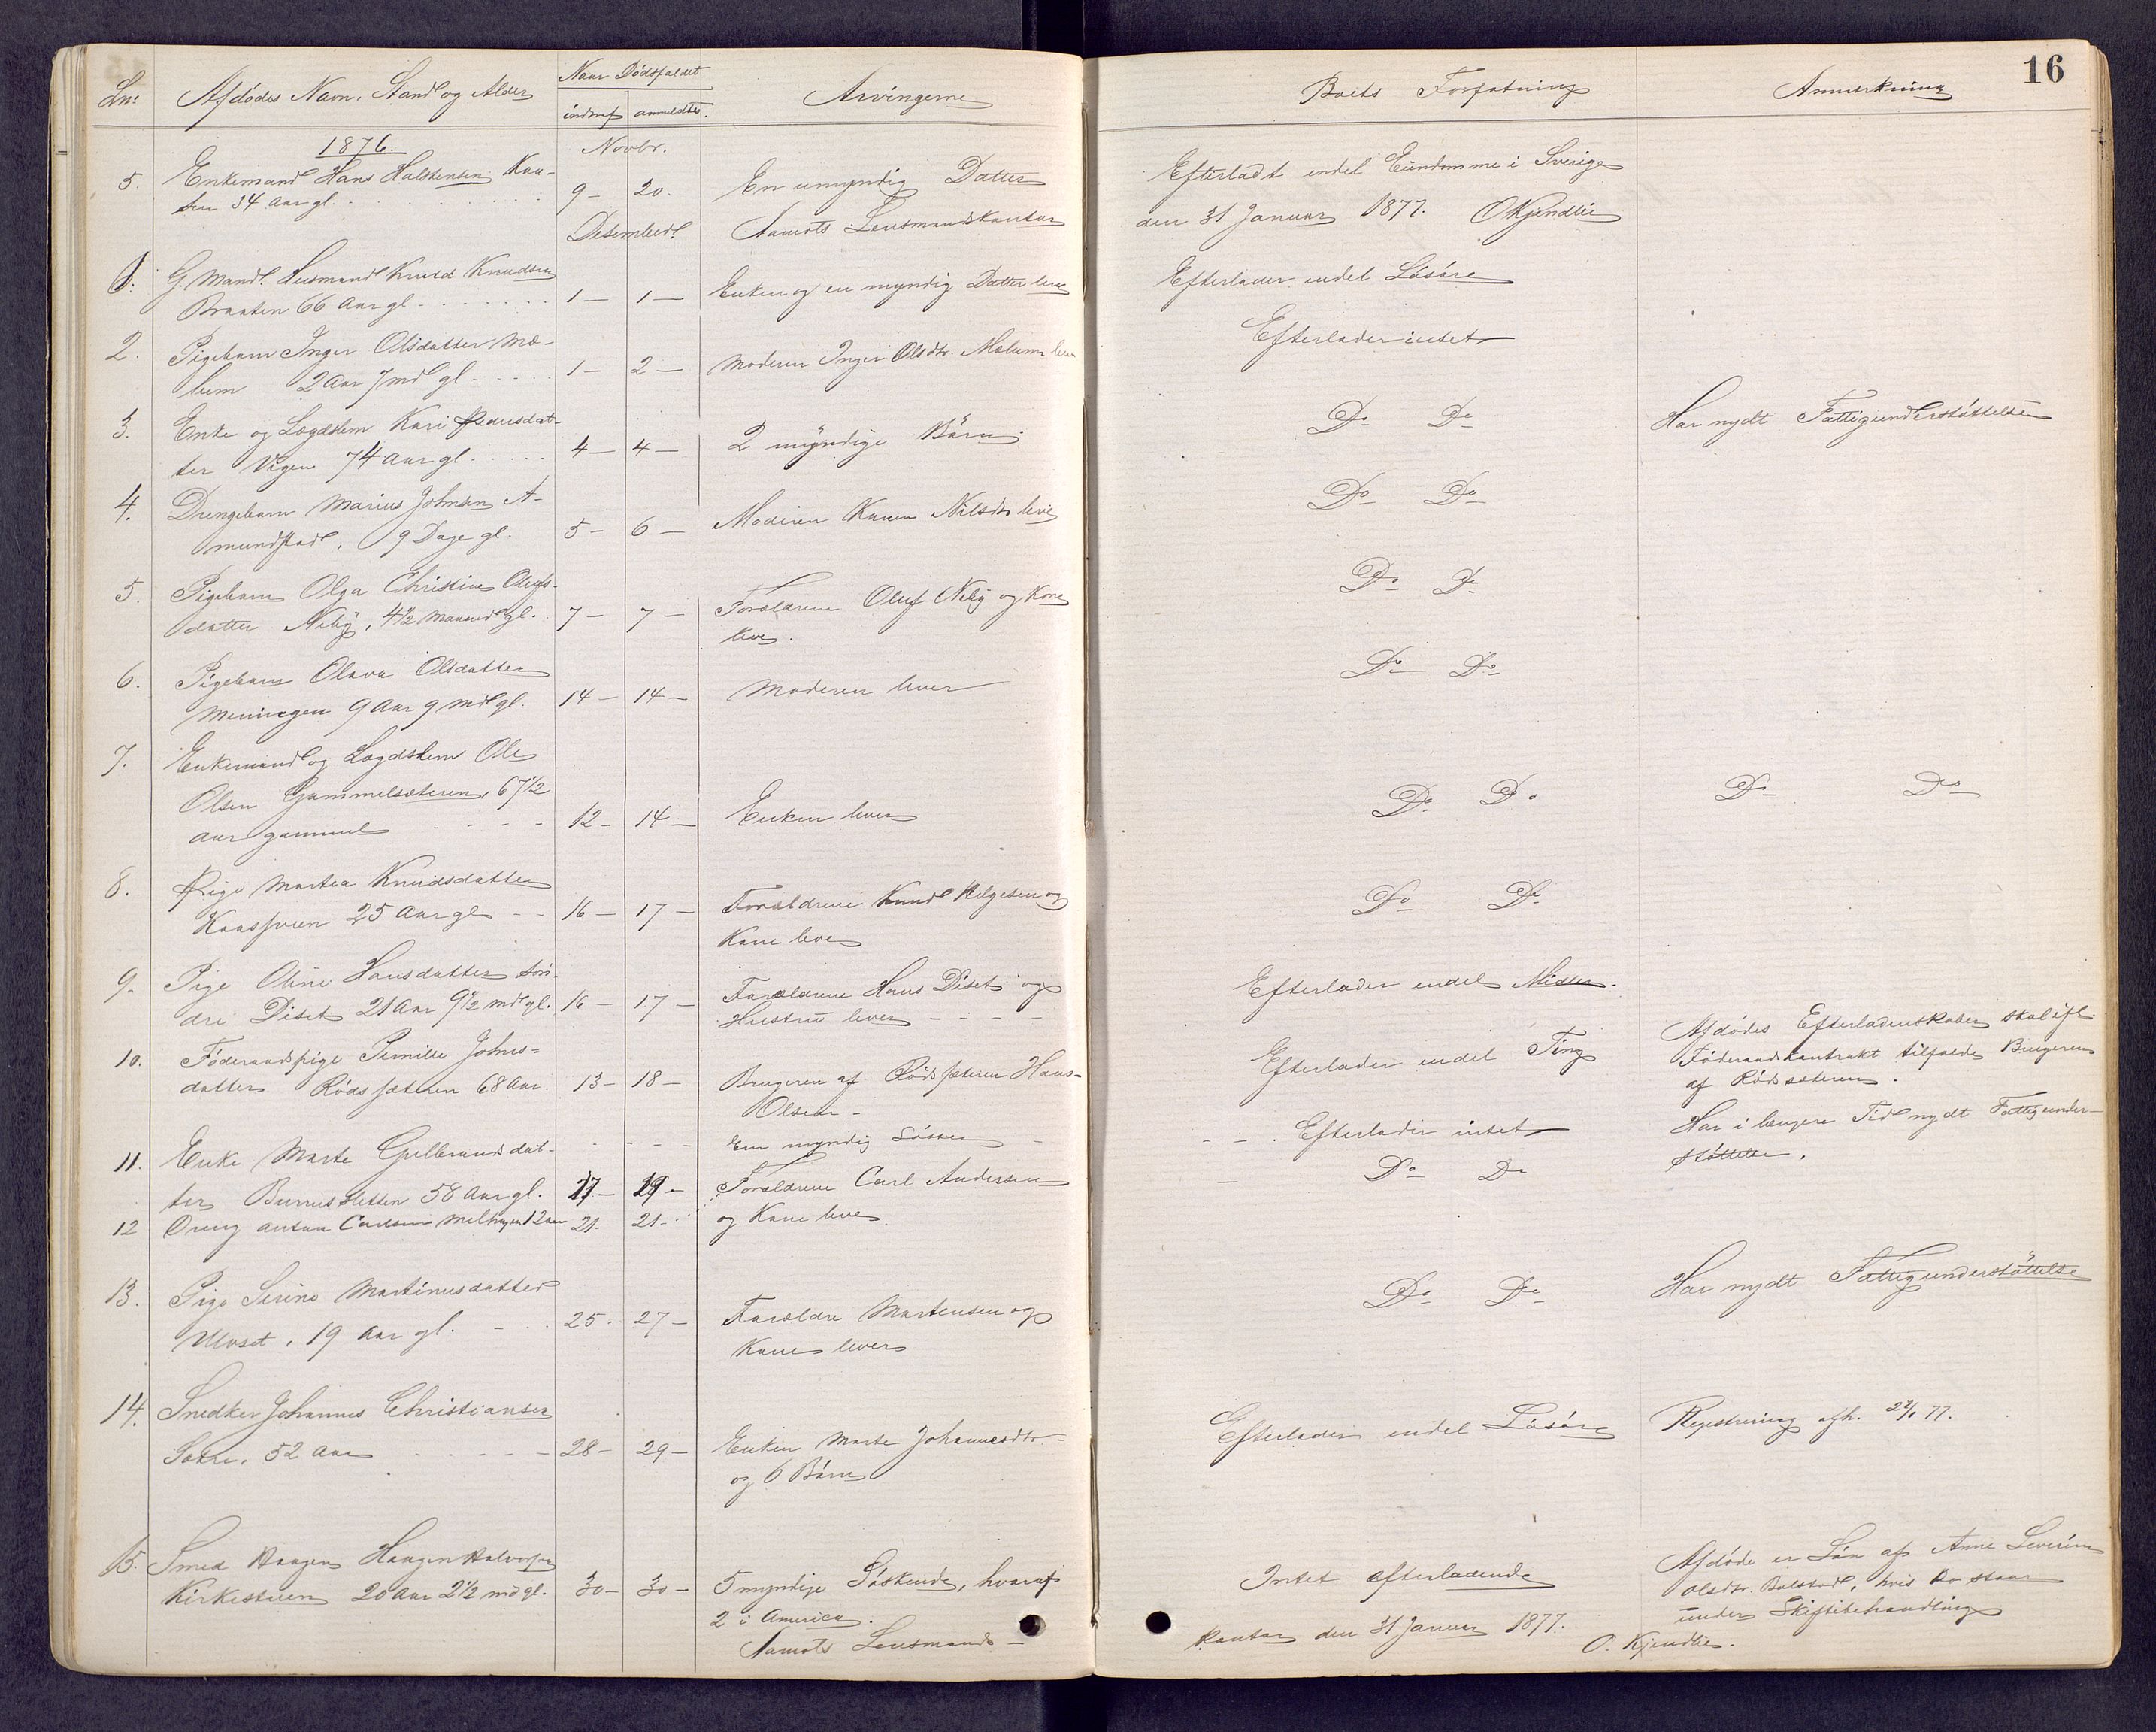 16
Ln:
Afdödes Navn, Stand og Alder
Naar Dödsfaldet
indtraf
anmeldtes.
Arvingerne
Boets Forfatning
Anmærkning
1876.
Novbr.
5.
Enkemand Hans Halstensen
34 Aar gl.
9 -
20.
En umyndig Datter
Efterladt endel Eiendomme i Sverige
Desember
Aamots Lensmandskontor
den 31 Januar 1877. O Kjendlie
1.
G. Mand. Husmand Knud Knudsen
Braaten 66 Aar gl.
1 -
1 -
Enken og en myndig Datter lever
Efterlader endel Lösöre
2.
Pigebarn Inger Olsdatter Mæ-
lum 2 Aar 7 md gl
1 -
2 -
Moderen Inger Olsdtr. Mælum lever
Efterlader intet
3.
Enke og Lægdslem Kari Pedersdat-
ter Vigen 74 Aar gl.
4 -
4 -
2 myndige Börn
Do Do
Har nydt Fattigunderstöttelse
4.
Drengebarn Marius Johnsen A-
mundstad, 9 Dage gl.
5 -
6 -
Moderen Karen Nilsdtr lever
Do Do
5.
Pigebarn Olga Christine Olufs-
datter Neby, 4 1/2 Maaned gl.
7 -
7 -
Forældrene Oluf Neby og Kone
lever.
Do Do
6.
Pigebarn Olava Olsdatter
9 Aar 9 md gl.
14 -
14 -
Moderen lever
Do Do
7.
Enkemand og Lægdslem Ole
Olsen Gammelsæteren, 67 1/2
Aar gammel
12 -
14 -
Enken lever
Do Do
Do Do
8.
Pige Martea Knudsdatter
25 Aar gl
16 -
17 -
Forældrene Knud Helgesen og
Kone lever
Do Do
9.
Pige Oline Hansdatter sön-
dre Diset 21 Aar 9 1/2 md gl.
16 -
17 -
Forældrene Hans Diset og
Hustru lever
Efterlader endel Midler.
10.
Föderaadspige Pernille Johns-
datter Rödssæteren 68 Aar.
13 -
18 -
Brugeren af Rödssæteren Hans
Olsen -
Efterlader endel Ting
Afdödes Efterladenskaber skal ifl.
Föderaadskontrakt tilfalde Brugeren
af Rödssæteren.
11.
Enke Marte Gulbrandsdat-
ter 58 Aar gl.
17 -
19 -
Em myndig Söster
Efterlader intet
Har i længere Tid nydt Fattigunder-
stöttelse.
12
Dreng Anton Carlsen Melhagen 12 Aar
21 -
21 -
Forældrene Carl Andersen
og Kone lever
Do Do
13.
Pige Serine Martinusdatter
Ulvset, 19 Aar gl.
25 -
27 -
Forældre Martensen og
Kone lever
Do Do
Har nydt Fattigunderstöttelse
14.
Snedker Johannes Christiansen
Sætre, 52 Aar
28 -
29 -
Enken Marte Johannesdtr
og 6 Börn
Efterlader endel Lösöre
Registrering afh. 77.
15.
Smed Haagen Halvorsen
Kirkestuen 20 Aar 2 1/2 md gl.
30 -
30 -
5 myndige Söskende, hvoraf
2 i America.
Intet efterladende
Afdöde er Sön af Anne Severine
Olsdtr. Bolstad, hvis Bo staar
under Skiftebehandling
Aamots Lensmands-
kontor den 31 Januar 1877.
O. Kjendlie.